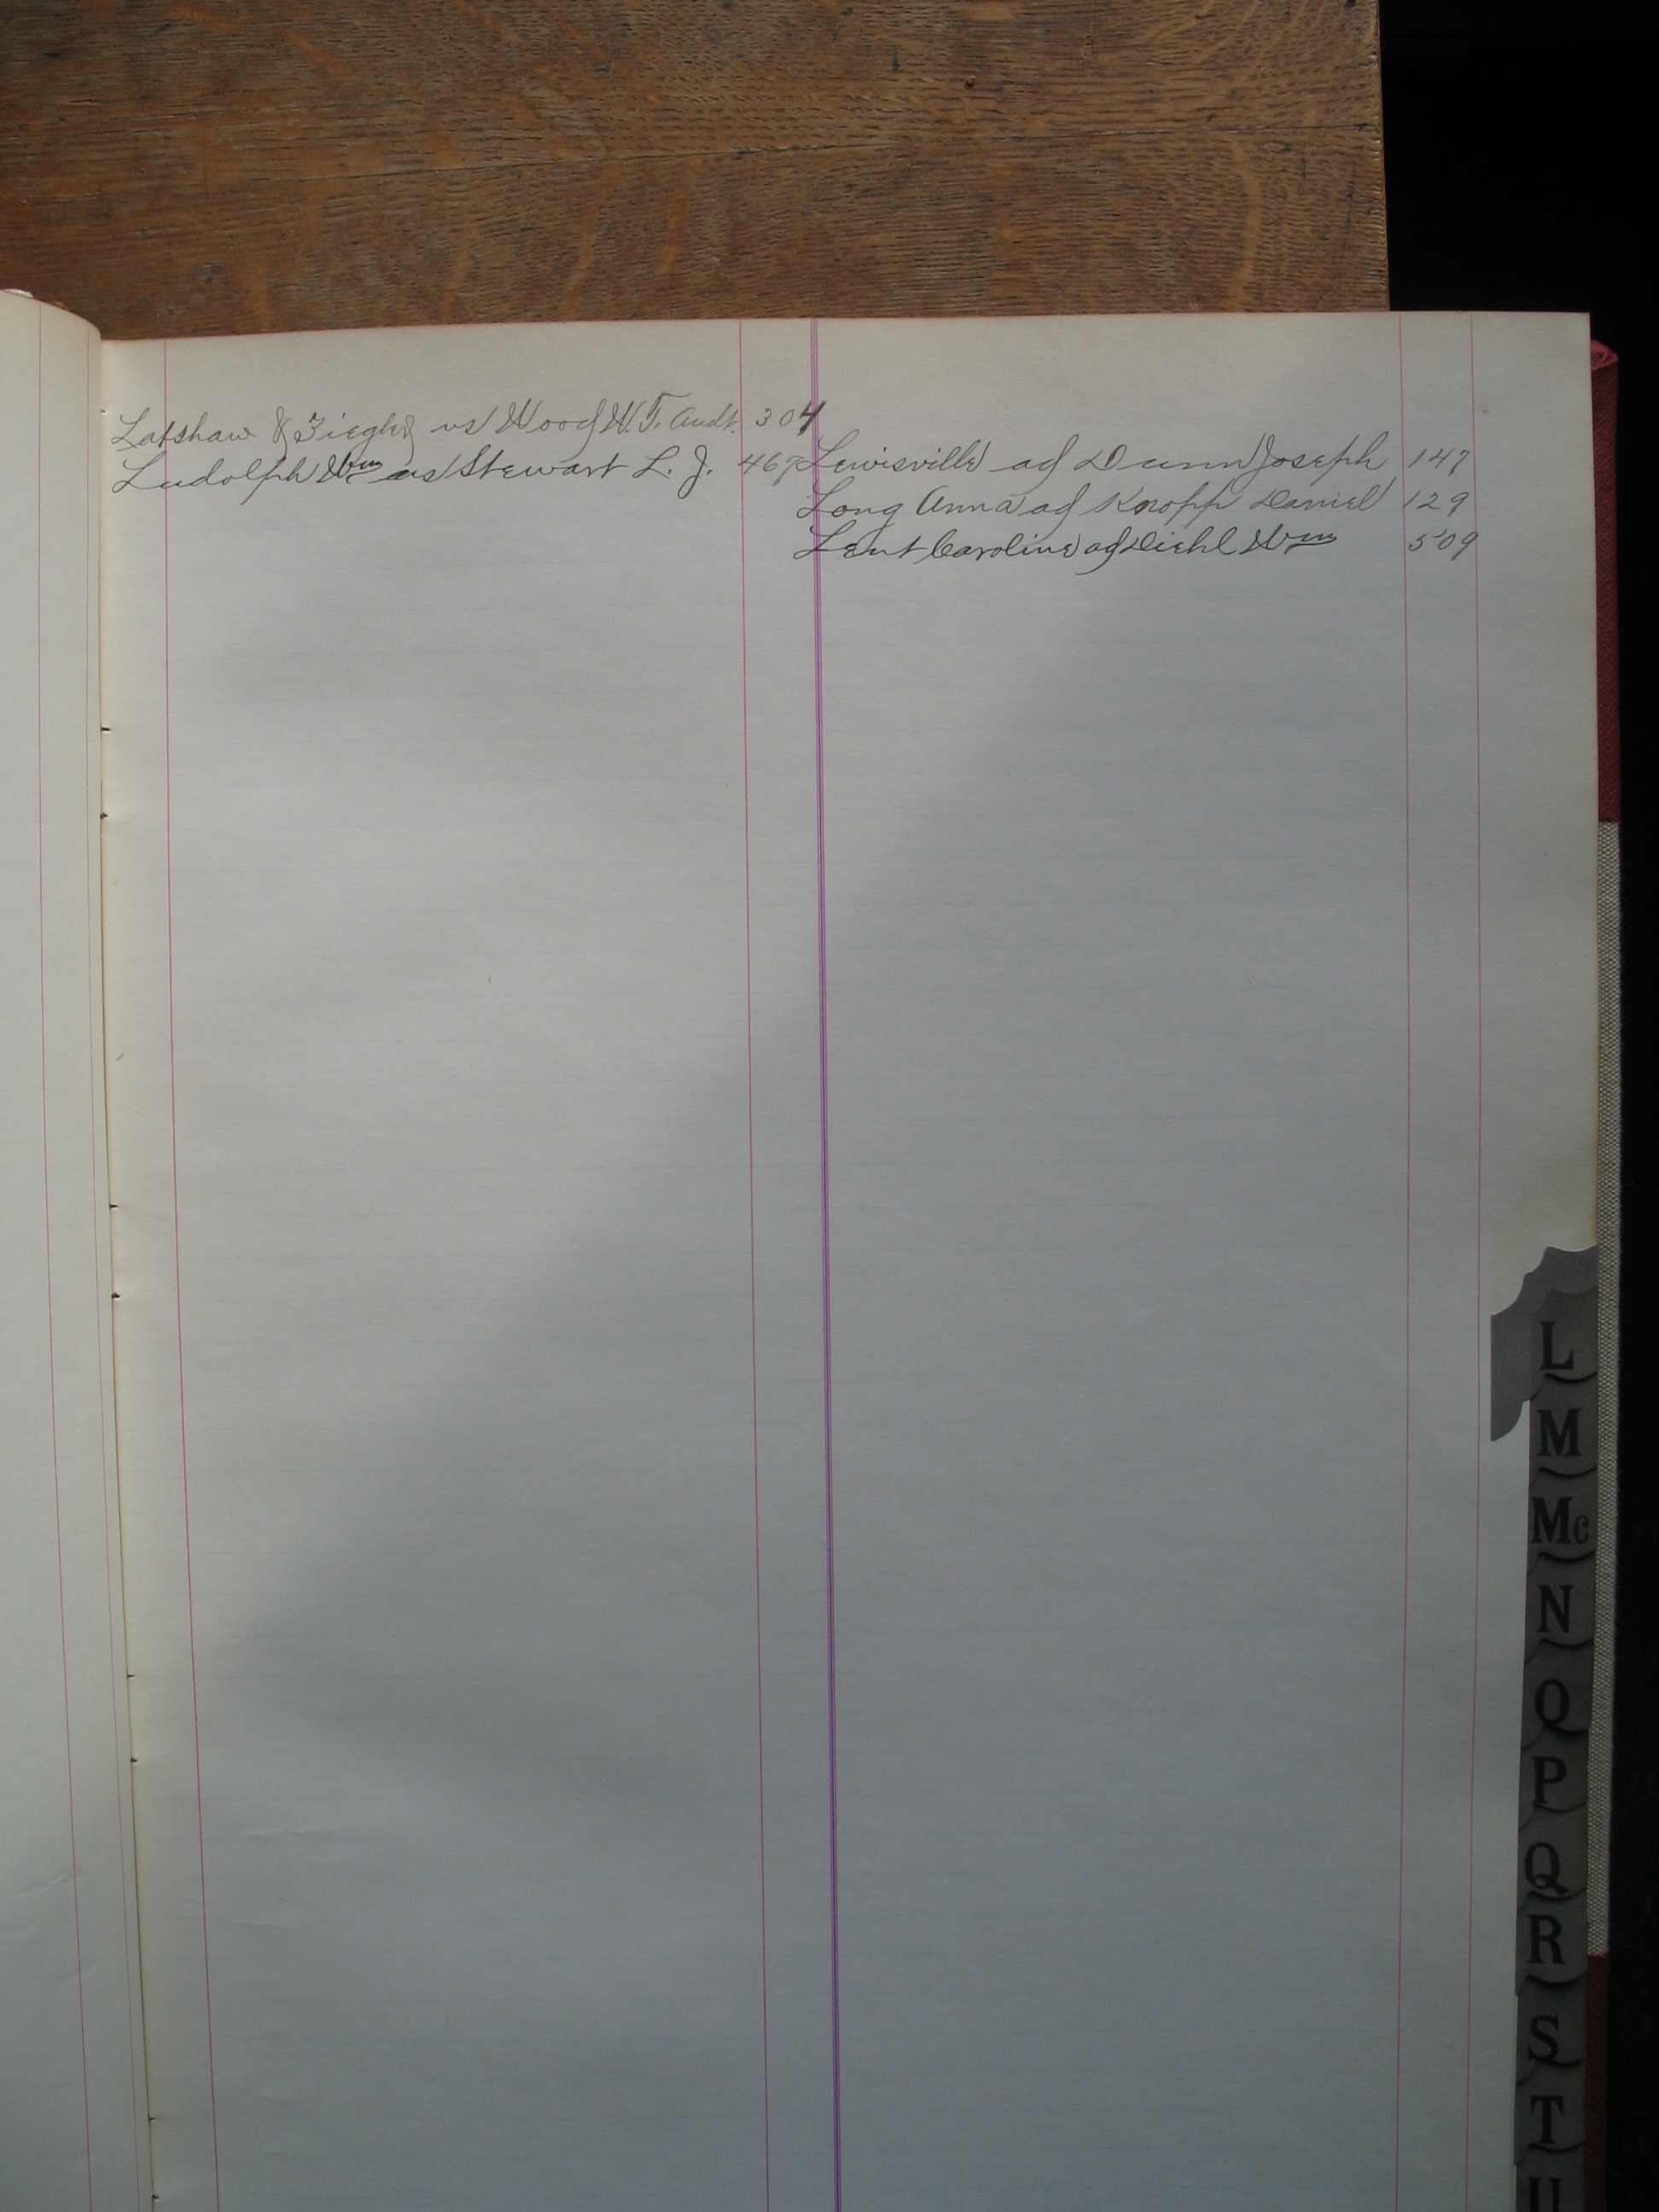 Latshaw & Ziegler vs Wood W. T. Audt. 304
Ludolph Wm vs Stewart L. J. 467
Lewisville ad Dunn Joseph 147
Long Anna ad Knopp Daniel 129
Lent Caroline ad Diehl Wm 509
L
M
Mc
N
O
P
Q
R
S
T
U